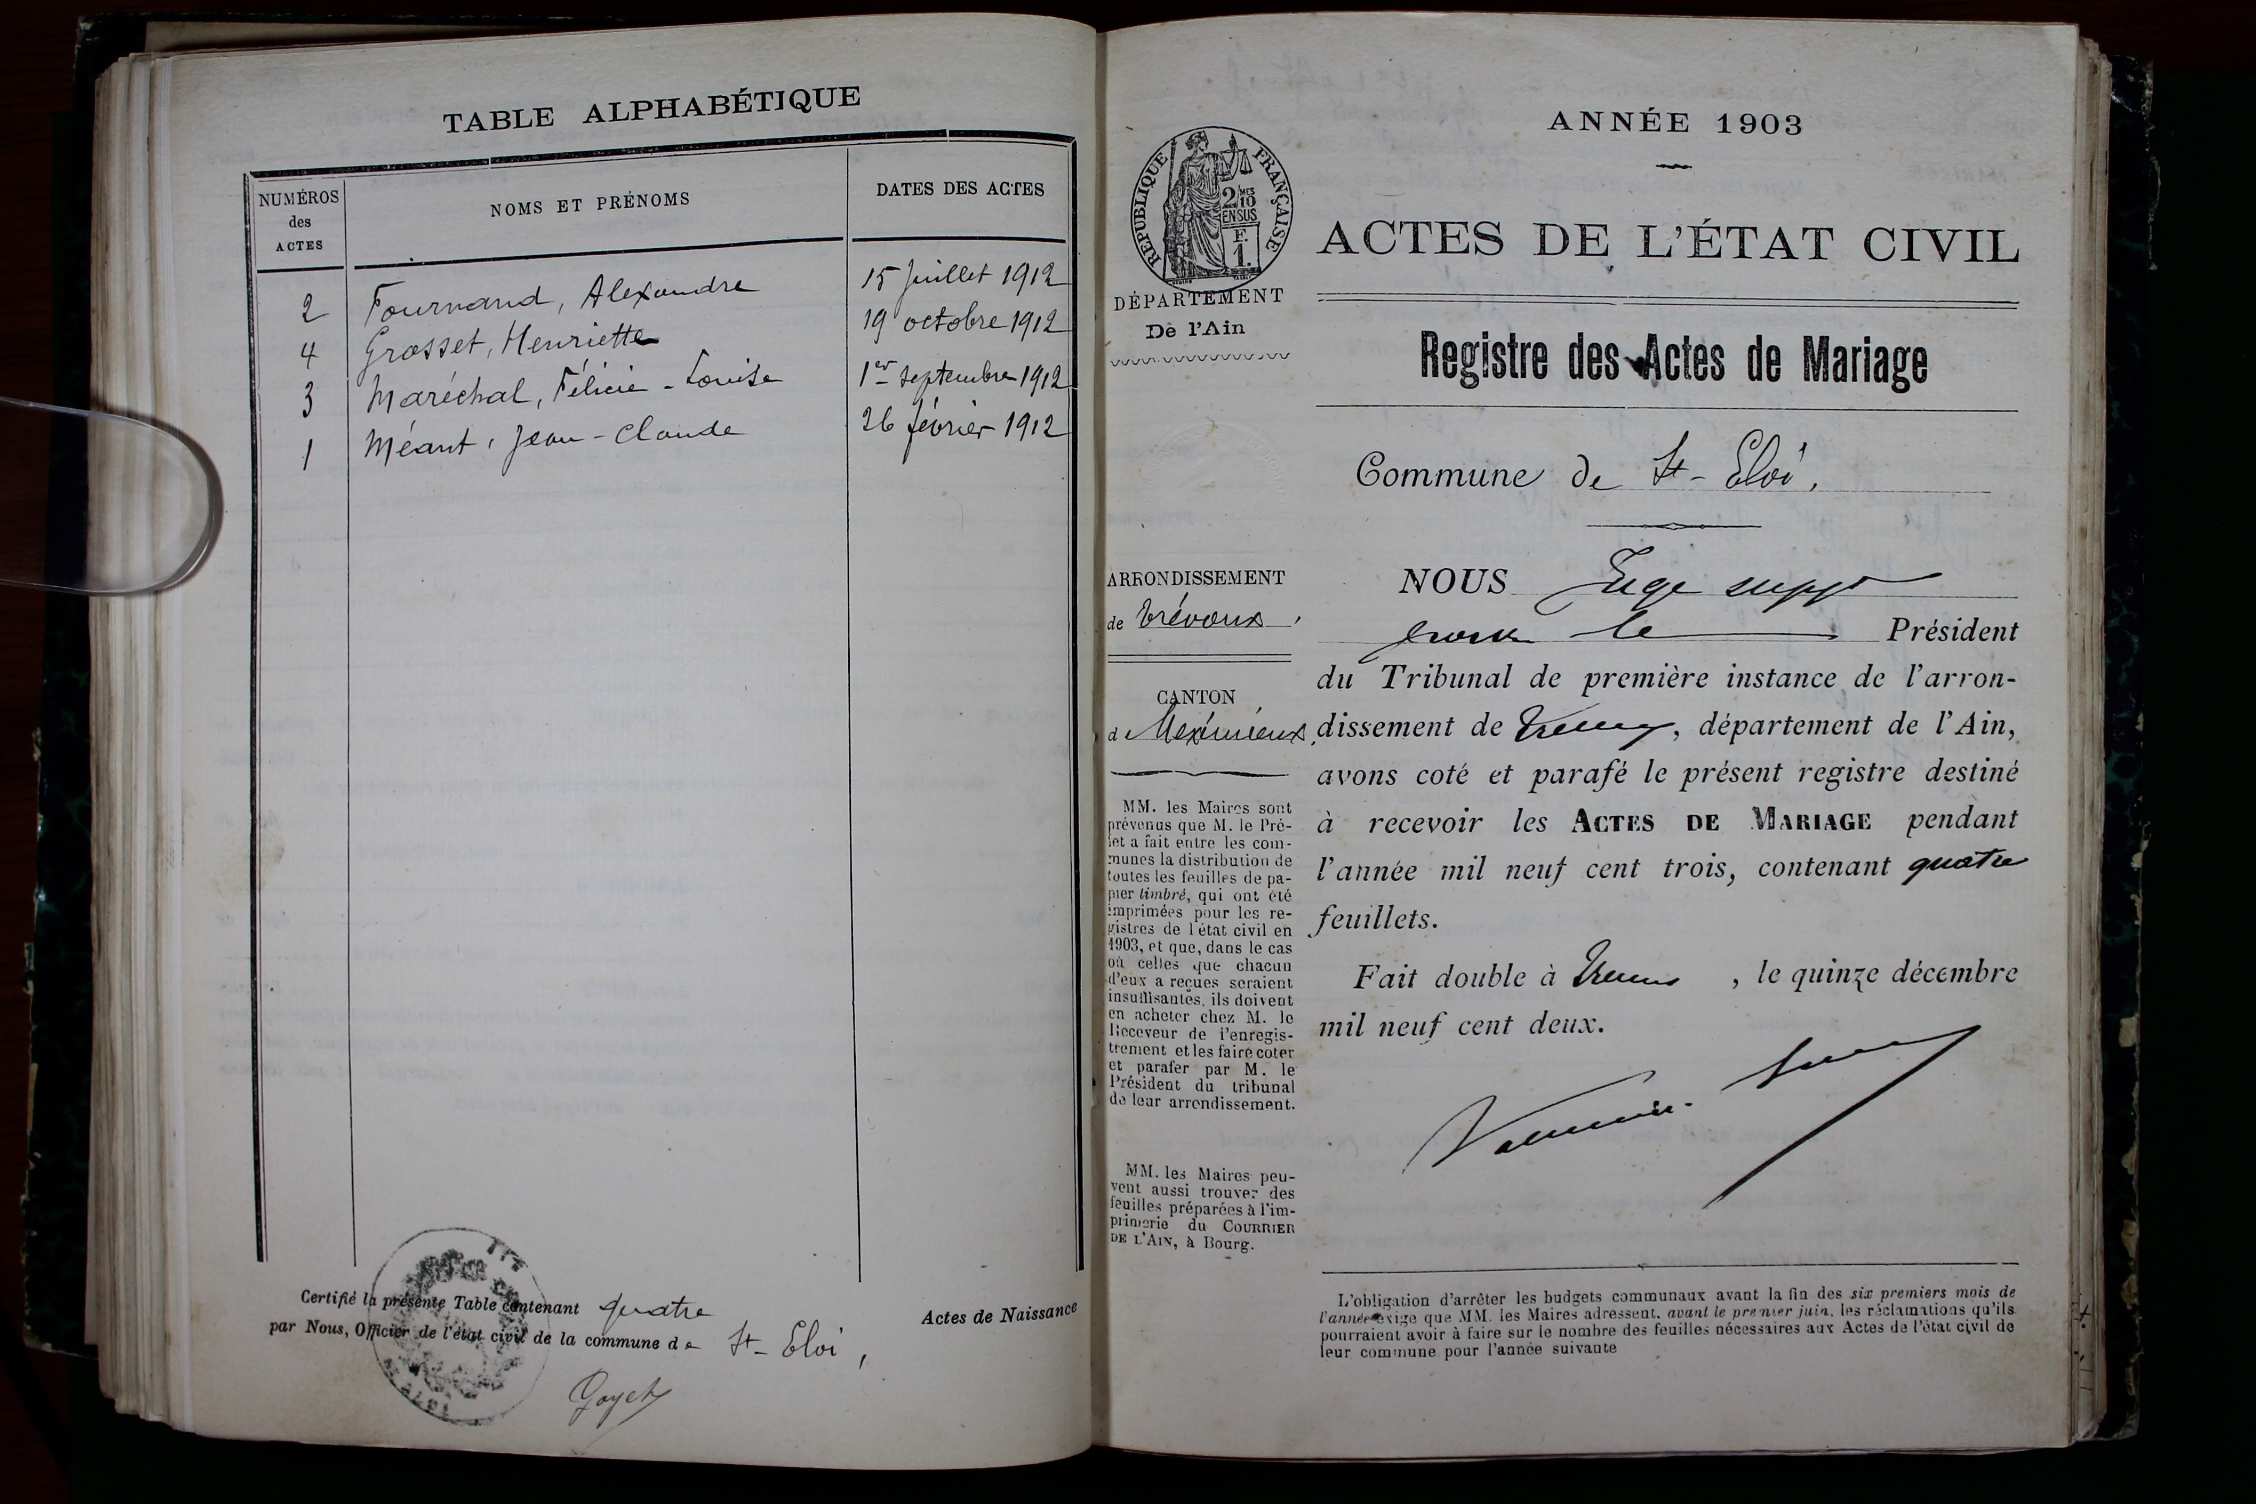 TABLE ALPHABÉTIQUE
NUMÉROS
des
ACTES
NOMS ET PRÉNOMS
DATES DES ACTES
2 Fournand, Alexandre 15 Juillet 1912
4 Grosset, Henriette 19 octobre 1912
3 Maréchal, Félicie-Louise 1er septembre 1912
1 Méant, Jean-Claude 26 février 1912
Certifié la présente Table contenant quatre Actes de Naissance
par Nous, Officier de l'état civil de la commune de St-Eloi,
Goyet
RÉPUBLIQUE FRANÇAISE
2/10
MES
EN SUS
F.
1.
DÉPARTEMENT
De l'Ain
ARRONDISSEMENT
de Trévoux,
CANTON
de Meximieux,
MM. les Maires sont
prévenus que M. le Pré-
fet a fait entre les com-
munes la distribution de
toutes les feuilles de pa-
pier timbré, qui ont été
imprimées pour les re-
gistres de l'état civil en
1903, et que, dans le cas
où celles que chacun
d'eux a reçues seraient
insuffisantes, ils doivent
en acheter chez M. le
Receveur de l'enregis-
trement et les faire coter
et parafer par M. le
Président du tribunal
de leur arrondissement.
MM. les Maires peu-
vent aussi trouver des
feuilles préparées à l'im-
primerie du COURRIER
DE L'AIN, à Bourg.
ANNÉE 1903
ACTES DE L'ÉTAT CIVIL
Registre des Actes de Mariage
Commune de St-Eloi,
NOUS Juge suppt
pour le Président
du Tribunal de première instance de l'arron-
dissement de Trévoux, département de l'Ain,
avons coté et parafé le présent registre destiné
à recevoir les ACTES DE MARIAGE pendant
l'année mil neuf cent trois, contenant quatre
feuillets.
Fait double à Trévoux, le quinze décembre
mil neuf cent deux.
L'obligation d'arrêter les budgets communaux avant la fin des six premiers mois de
l'année exige que MM. les Maires adressent, avant le premier juin, les réclamations qu'ils
pourraient avoir à faire sur le nombre des feuilles nécessaires aux Actes de l'état civil de
leur commune pour l'année suivante